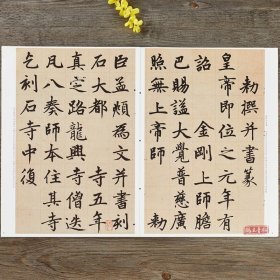 勅撰并書篆
皇帝即位之元年有
詔金剛上師膽
巴賜謚大覺普慈廣
照無上帝師
勅
臣孟頫為文并書刻
石大都寺五年
真定路龍興寺僧迭
凡八奏師本住其寺
乞刻石寺中復